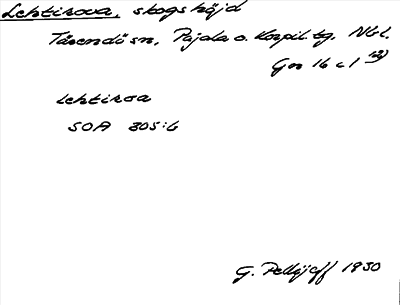 Lehtirova, skogshöjd
Tärendö sn, Pajala o. Korpil. tg. Nbl.
Gn 16 c 1
Lehtirova
SOA 305:6
G. Pellijeff 1930